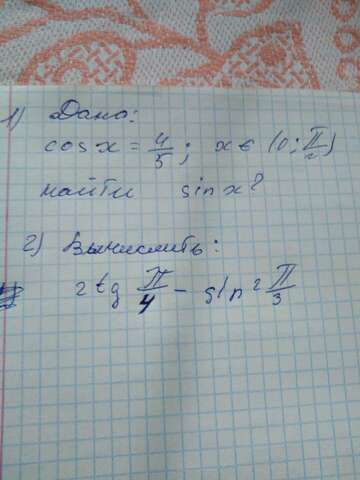 1) Дано:
cos x = 4/5; x ∈ (0; π/2)
найти sin x?
2) Вычислить:
2 tg π/4 - sin² π/3